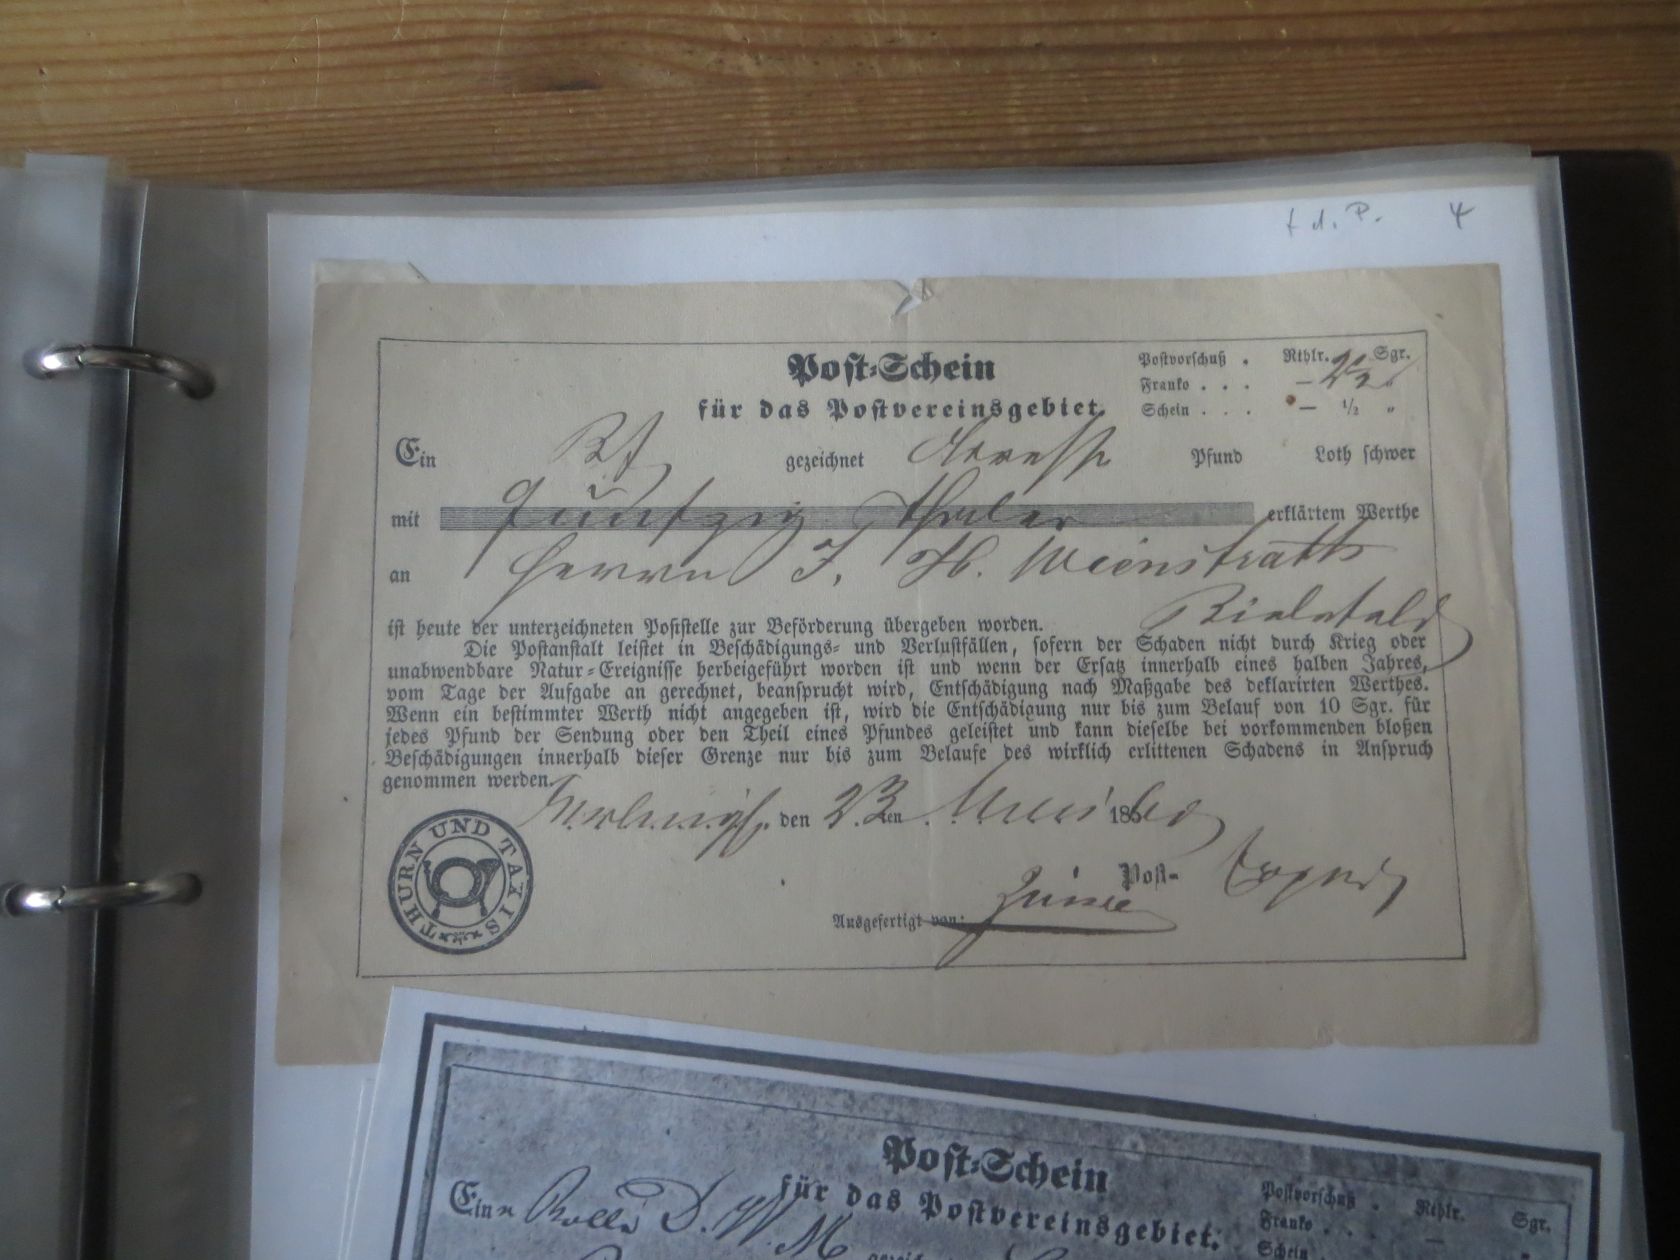 t. d. P. 4
Post-Schein
für das Postvereinsgebiet.
Postvorschuß . Rthlr. Sgr.
Franko . . . — 2½ "
Schein . . . — ½ "
Ein Bf gezeichnet Adresse Pfund Loth schwer
mit Funfzig Thaler erklärtem Werthe
an Herrn J. H. Wienstroth
Bielefeld
ist heute der unterzeichneten Poststelle zur Beförderung übergeben worden.
Die Postanstalt leistet in Beschädigungs- und Verlustfällen, sofern der Schaden nicht durch Krieg oder
unabwendbare Natur-Ereignisse herbeigeführt worden ist und wenn der Ersatz innerhalb eines halben Jahres,
vom Tage der Aufgabe an gerechnet, beansprucht wird, Entschädigung nach Maßgabe des deklarirten Werthes.
Wenn ein bestimmter Werth nicht angegeben ist, wird die Entschädigung nur bis zum Belauf von 10 Sgr. für
jedes Pfund der Sendung oder den Theil eines Pfundes geleistet und kann dieselbe bei vorkommenden bloßen
Beschädigungen innerhalb dieser Grenze nur bis zum Belaufe des wirklich erlittenen Schadens in Anspruch
genommen werden.
den 23ten 186
THURN UND TAXIS
Post- Exped.
Ausgefertigt von:
Post-Schein
für das Postvereinsgebiet.
Postvorschuß . Rthlr. Sgr.
Franko . . . —
Schein
Eine Rolle D. W. M.